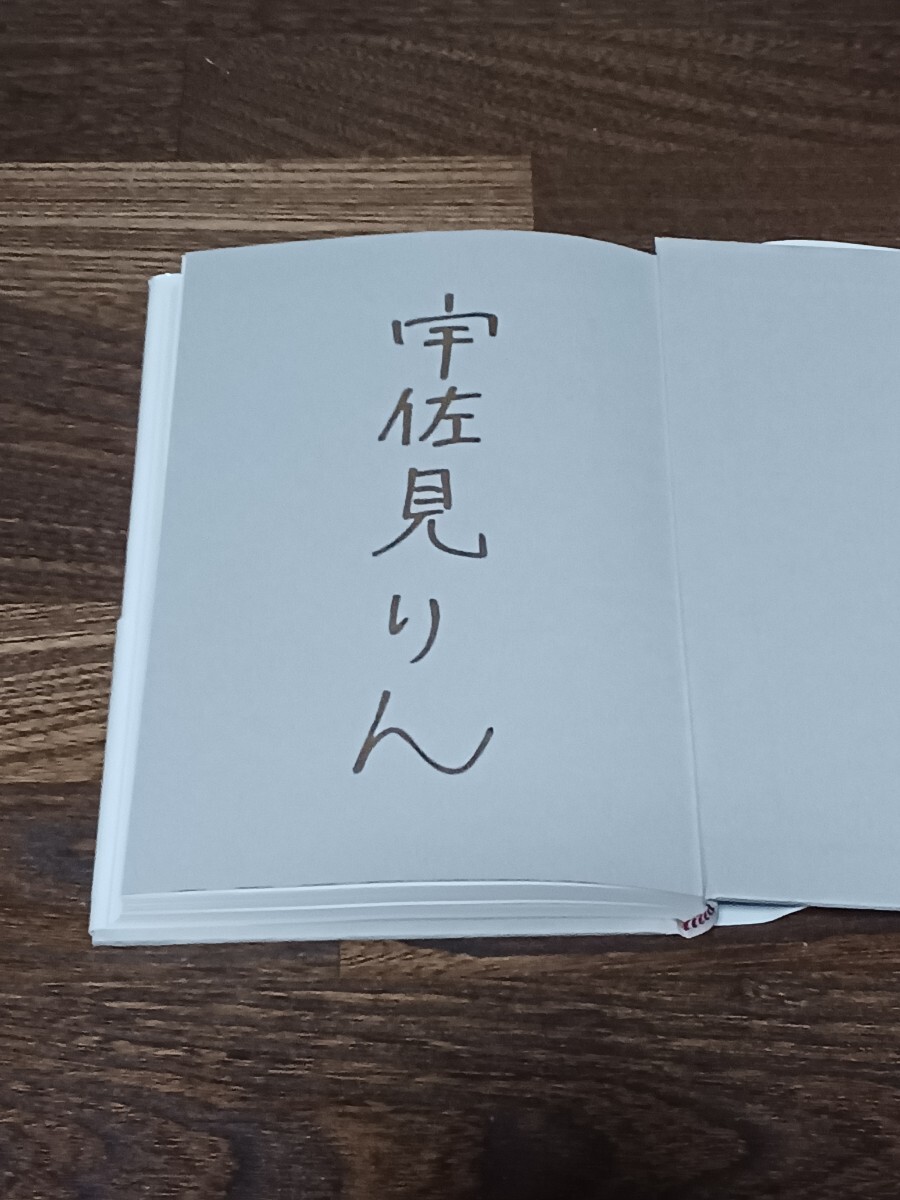 宇佐見りん